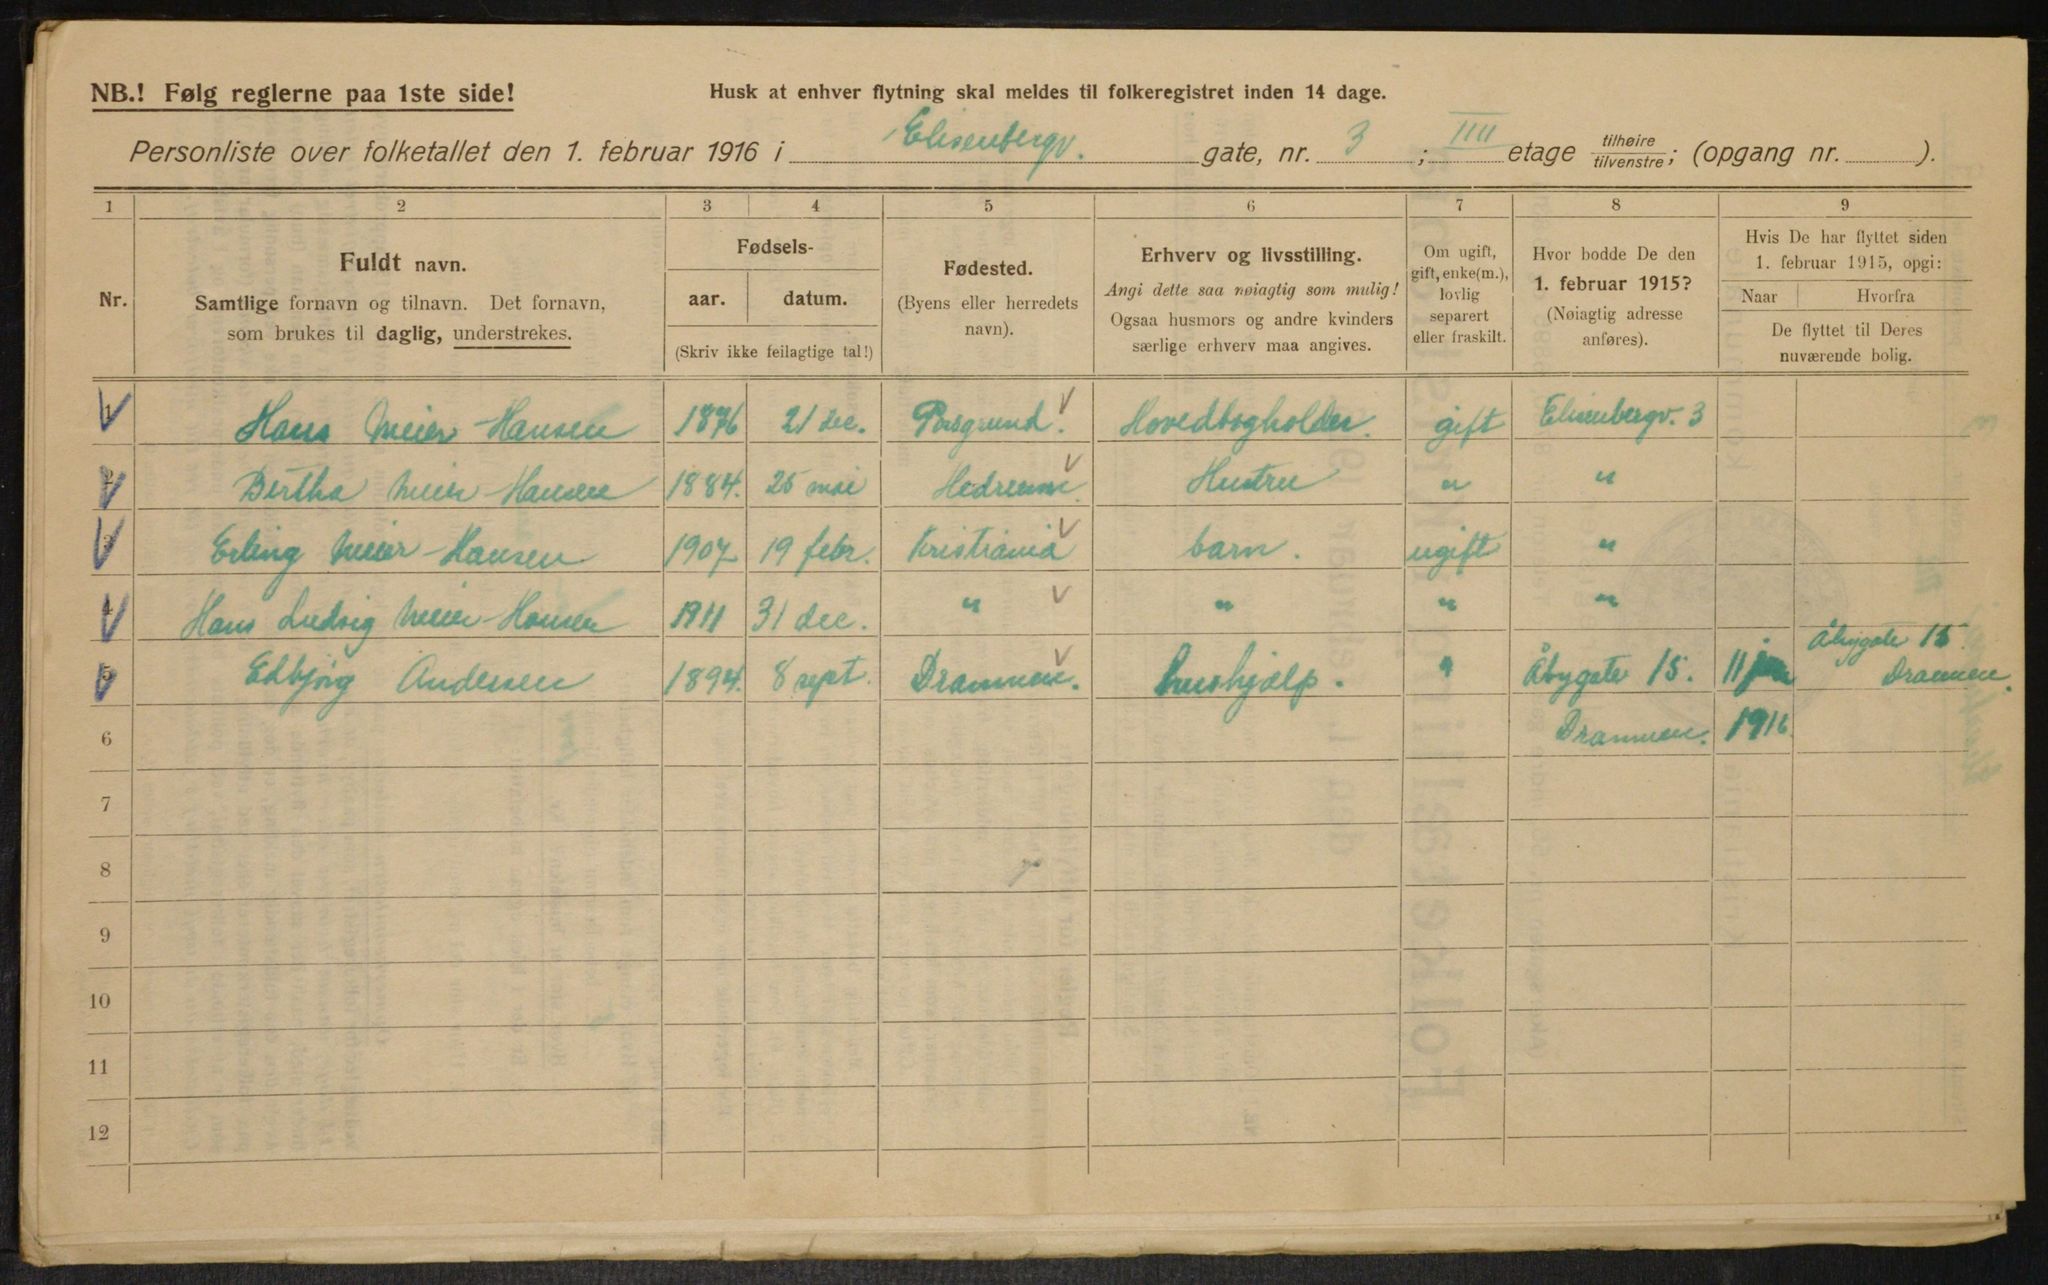 NB.! Følg reglerne paa 1ste side!
Husk at enhver flytning skal meldes til folkeregistret inden 14 dage.
Personliste over folketallet den 1. februar 1916 i Elisenbergv. gate, nr. 3; IIII etage tilhøire/tilvenstre; (opgang nr. ).
1 2 3 4 5 6 7 8 9
Nr.
Fuldt navn.
Samtlige fornavn og tilnavn. Det fornavn,
som brukes til daglig, understrekes.
Fødsels-
aar. datum.
(Skriv ikke feilagtige tal!)
Fødested.
(Byens eller herredets
navn).
Erhverv og livsstilling.
Angi dette saa nøiagtig som mulig!
Ogsaa husmors og andre kvinders
særlige erhverv maa angives.
Om ugift,
gift, enke(m.),
lovlig
separert
eller fraskilt.
Hvor bodde De den
1. februar 1915?
(Nøiagtig adresse
anføres).
Hvis De har flyttet siden
1. februar 1915, opgi:
Naar Hvorfra
De flyttet til Deres
nuværende bolig.
1 Hans Meier-Hansen 1876 21 dec. Porsgrund. Hovedbogholder. gift Elisenbergv. 3
2 Bertha Meier-Hansen 1884. 25 mai Hedrum. Hustru " "
3 Erling Meier-Hansen 1907 19 febr. Kristiania barn. ugift "
4 Hans Ludvig Meier-Hansen 1911 31 dec. " " " "
5 Edbjørg Andersen 1894. 8 sept. Drammen. hushjælp. " Åbygate 15. 11 jan Åbygate 15
Drammen.
6 Drammen. 1916.
7
8
9
10
11
12